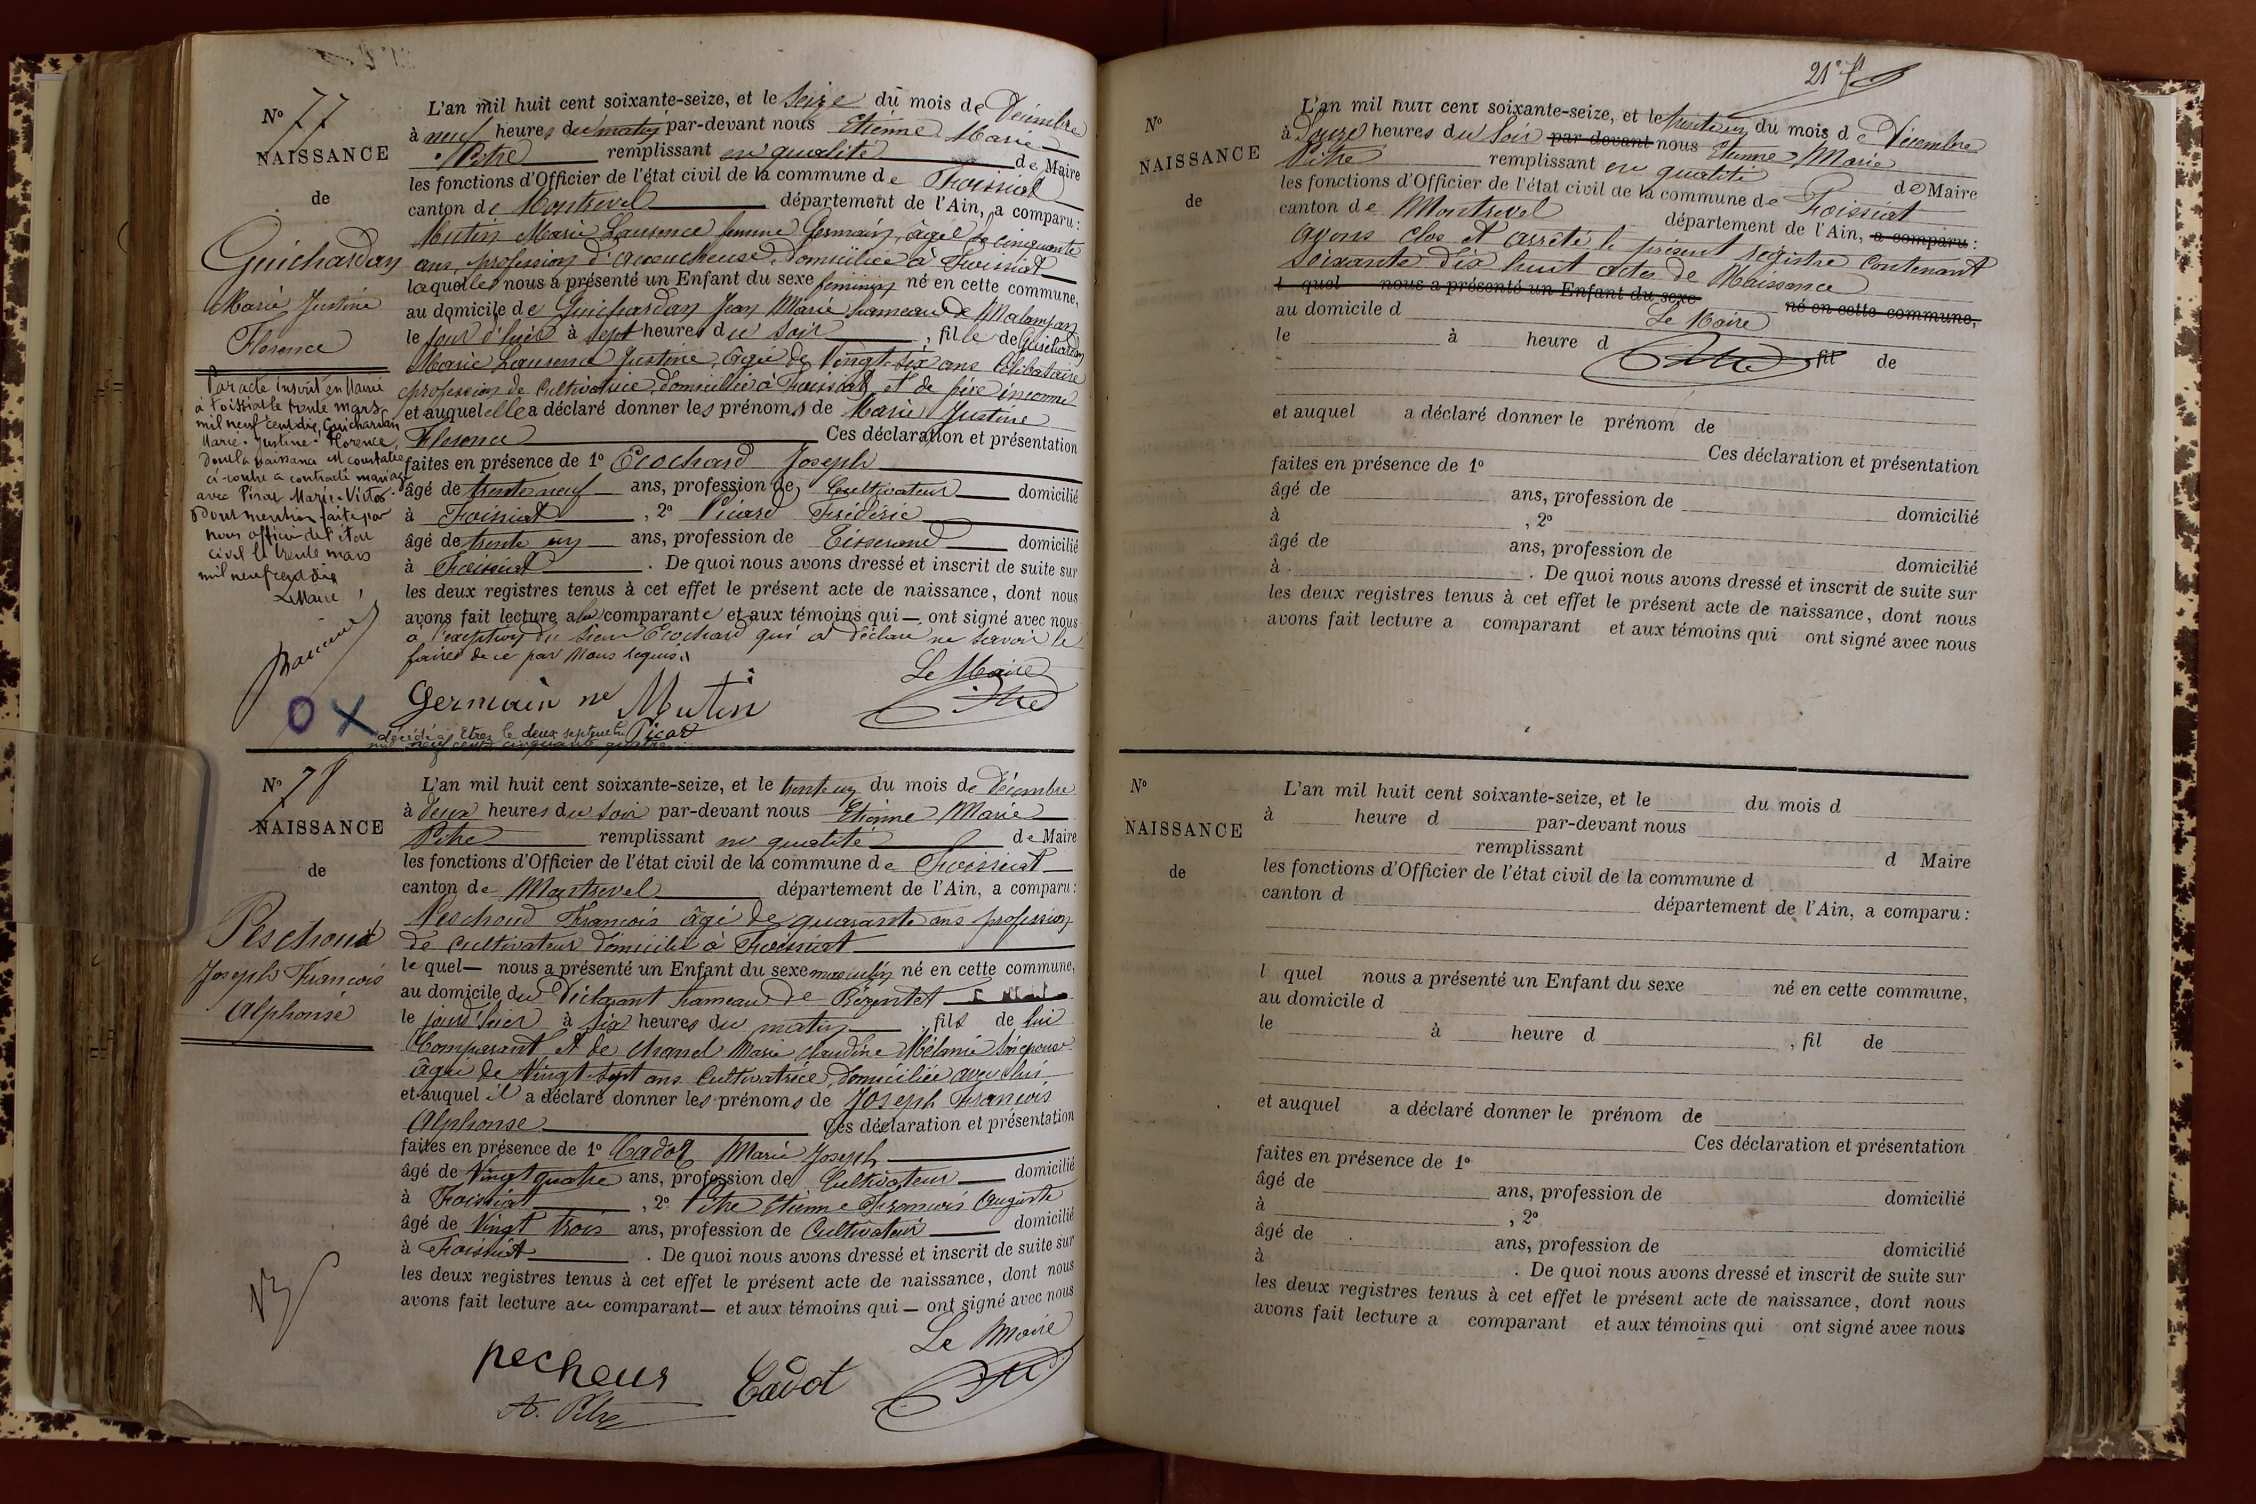 N° 77
NAISSANCE
de
Guichardan
Marie Justine
Florence
Par acte inscrit en Mairie
à Foissiat le trente mars
mil neuf cent dix, Guichardan
Marie-Justine-Florence,
dont la naissance est constatée
ci-contre a contracté mariage
avec Piroz Marie-Victor
Dont mention faite par
nous officier de l'état
civil le trente mars
mil neuf cent dix
Le Maire
L'an mil huit cent soixante-seize, et le seize du mois de Décembre
à neuf heures du matin par-devant nous Etienne Marie
Pitre remplissant en qualité de Maire
les fonctions d'Officier de l'état civil de la commune de Foissiat
canton de Montrevel département de l'Ain, a comparu :
Mutin Marie Laurence femme Germain, âgée de cinquante
ans, profession d'accoucheuse, domiciliée à Foissiat
laquelle nous a présenté un Enfant du sexe féminin né en cette commune,
au domicile de Guichardan Jean Marie hameau de Malampan
le jour d'hier à sept heures du soir, fille de Guichardan
Marie Laurence Justine, âgée de vingt-six ans Célibataire
profession de Cultivatrice, domiciliée à Foissiat, et de père inconnu
et auquel elle a déclaré donner les prénoms de Marie Justine
Florence Ces déclaration et présentation
faites en présence de 1° Ecochard Joseph
âgé de trente neuf ans, profession de Cultivateur domicilié
à Foissiat, 2° Picard Frédéric
âgé de trente un ans, profession de Tisserand domicilié
à Foissiat. De quoi nous avons dressé et inscrit de suite sur
les deux registres tenus à cet effet le présent acte de naissance, dont nous
avons fait lecture a la comparante et aux témoins qui — ont signé avec nous
a l'exception du sieur Ecochard qui a déclaré ne savoir le
faire de ce par Nous requis.
Le Maire
Germain né Mutin
Pitre
décédée à Etrez le deux septembre Picard
mil neuf cent cinquante quatre
O X
N° 78
NAISSANCE
de
Peschoud
Joseph François
Alphonse
L'an mil huit cent soixante-seize, et le trente un du mois de Décembre
à deux heures du soir par-devant nous Etienne Marie
Pitre remplissant en qualité de Maire
les fonctions d'Officier de l'état civil de la commune de Foissiat
canton de Montrevel département de l'Ain, a comparu :
Peschoud François âgé de quarante ans profession
de Cultivateur domicilié à Foissiat
le quel — nous a présenté un Enfant du sexe masculin né en cette commune,
au domicile du Déclarant hameau de Bézentet
le jour d'hier à six heures du matin, fils de lui
Comparant et de Chanel Marie Claudine Mélanie son épouse
âgée de Vingt-sept ans Cultivatrice, domiciliée avec lui
et auquel il a déclaré donner les prénoms de Joseph François
Alphonse Ces déclaration et présentation
faites en présence de 1° Cadot Marie Joseph
âgé de Vingt quatre ans, profession de Cultivateur domicilié
à Foissiat, 2° Pitre Etienne François Auguste
âgé de Vingt trois ans, profession de Cultivateur domicilié
à Foissiat. De quoi nous avons dressé et inscrit de suite sur
les deux registres tenus à cet effet le présent acte de naissance, dont nous
avons fait lecture au comparant — et aux témoins qui — ont signé avec nous
Le Maire
pecheur Cadot Pitre
A. Pitre
21e
N°
NAISSANCE
de
L'an mil huit cent soixante-seize, et le trente un du mois de Décembre
à Douze heures du Soir par-devant nous Etienne Marie
Pitre remplissant en qualité de Maire
les fonctions d'Officier de l'état civil de la commune de Foissiat
canton de Montrevel département de l'Ain, a comparu :
avons clos et arrêté le présent registre contenant
soixante dix huit actes de Naissance
l quel nous a présenté un Enfant du sexe né en cette commune,
au domicile d
Le Maire
le à heure d
Pitre fil de
et auquel a déclaré donner le prénom de
Ces déclaration et présentation
faites en présence de 1°
âgé de ans, profession de domicilié
à , 2°
âgé de ans, profession de domicilié
à . De quoi nous avons dressé et inscrit de suite sur
les deux registres tenus à cet effet le présent acte de naissance, dont nous
avons fait lecture a comparant et aux témoins qui ont signé avec nous
N°
NAISSANCE
de
L'an mil huit cent soixante-seize, et le du mois d
à heure d par-devant nous
remplissant d Maire
les fonctions d'Officier de l'état civil de la commune d
canton d département de l'Ain, a comparu :
l quel nous a présenté un Enfant du sexe né en cette commune,
au domicile d
le à heure d , fil de
et auquel a déclaré donner le prénom de
Ces déclaration et présentation
faites en présence de 1°
âgé de ans, profession de domicilié
à , 2°
âgé de ans, profession de domicilié
à . De quoi nous avons dressé et inscrit de suite sur
les deux registres tenus à cet effet le présent acte de naissance, dont nous
avons fait lecture a comparant et aux témoins qui ont signé avec nous